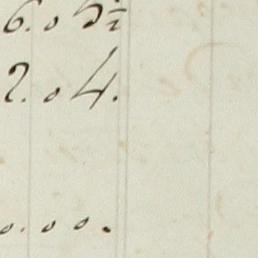 6. 0 5½
2. 0 4.
0. 0 0.